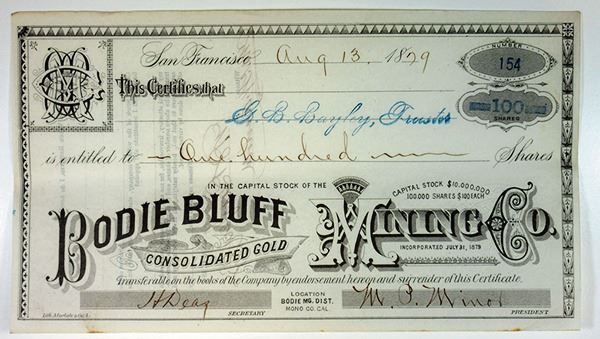 San Francisco Aug 13, 1879
NUMBER
154
This Certifies that
100
SHARES
G. B. Bayley, Trustee
is entitled to One hundred Shares
IN THE CAPITAL STOCK OF THE
CAPITAL STOCK $10,000,000
100,000 SHARES $100 EACH
BODIE BLUFF
CONSOLIDATED GOLD
MINING CO.
INCORPORATED JULY 31, 1879
Transferable on the books of the Company by endorsement hereon and surrender of this Certificate.
SECRETARY
LOCATION
BODIE MG. DIST.
MONO CO. CAL.
M. P. Minor
PRESIDENT